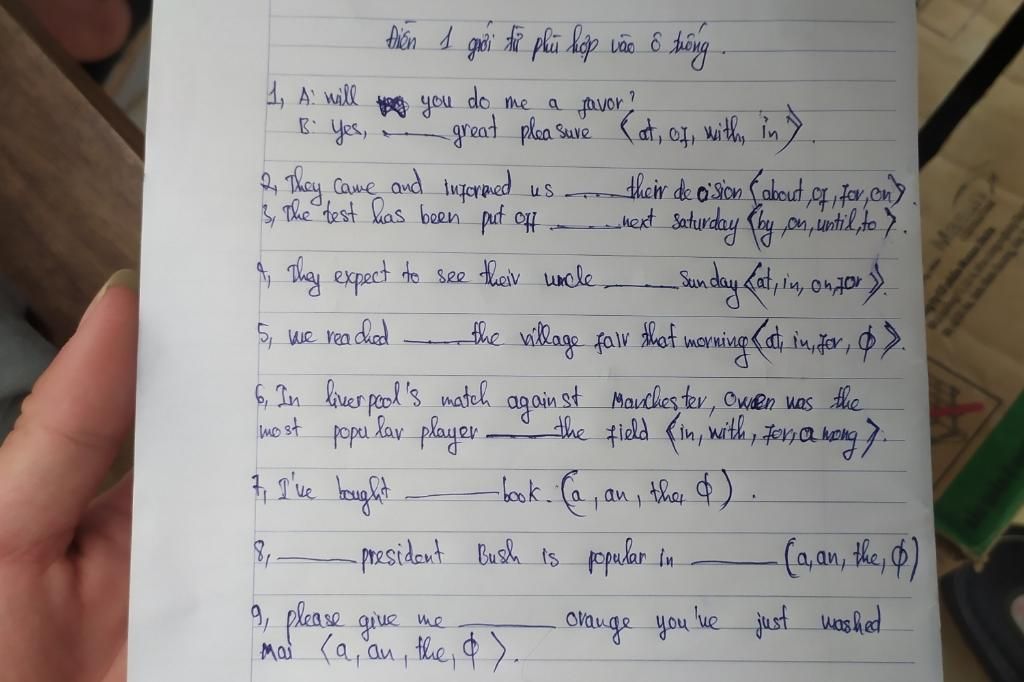 Điền 1 giới từ phù hợp vào ô trống.
1, A: Will you do me a favor?
B: Yes, ........ great pleasure <at, of, with, in>.
2, They came and informed us ........ their decision <about, of, for, on>.
3, The test has been put off ........ next saturday <by, on, until, to>.
4, They expect to see their uncle ........ Sunday <at, in, on, for>.
5, we reached ........ the village fair that morning <at, in, for, Φ>.
6, In liverpool's match against Manchester, Owen was the
most popular player ........ the field <in, with, for, among>.
7, I've bought ________ book. (a, an, the, Φ).
8, ________ president Bush is popular in ________ (a, an, the, Φ)
9, please give me ________ orange you've just washed
Mai <a, an, the, Φ>.